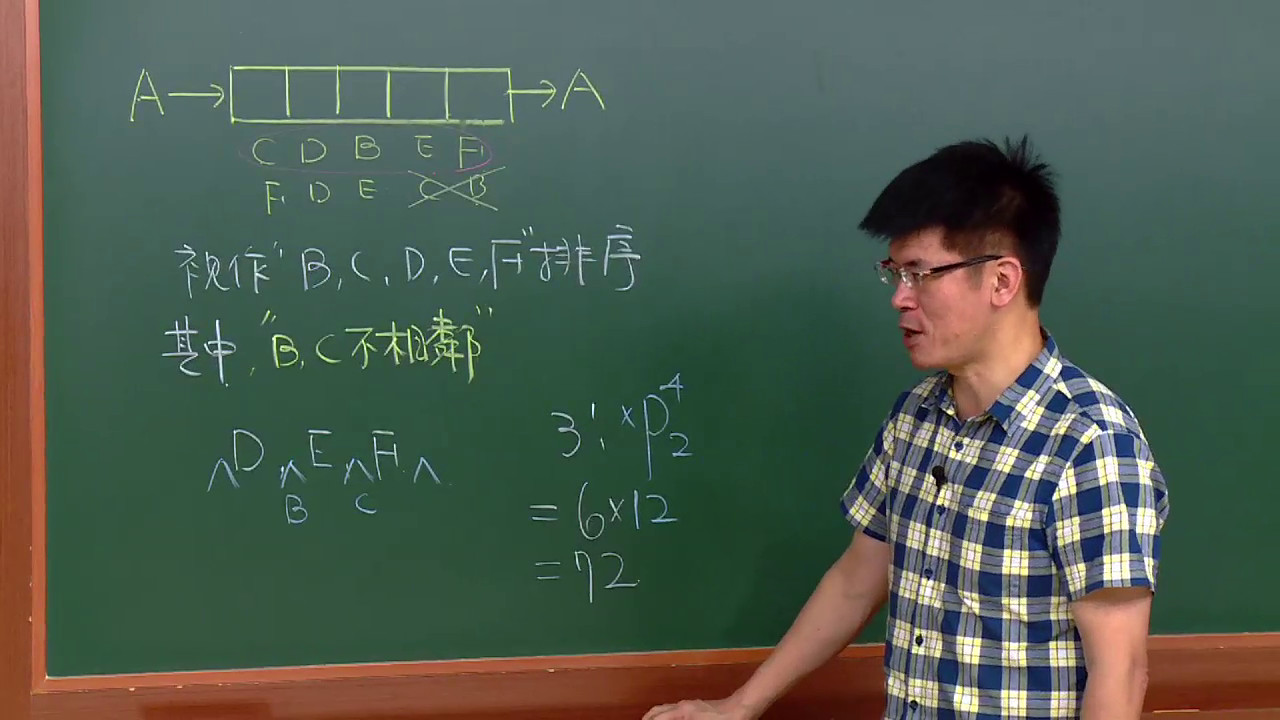 A→ →A
C D B E F
F D E C B
視作"B,C,D,E,F"排序
其中,"B,C不相鄰"
∧D∧E∧F∧
B C
3!×P⁴₂
=6×12
=72